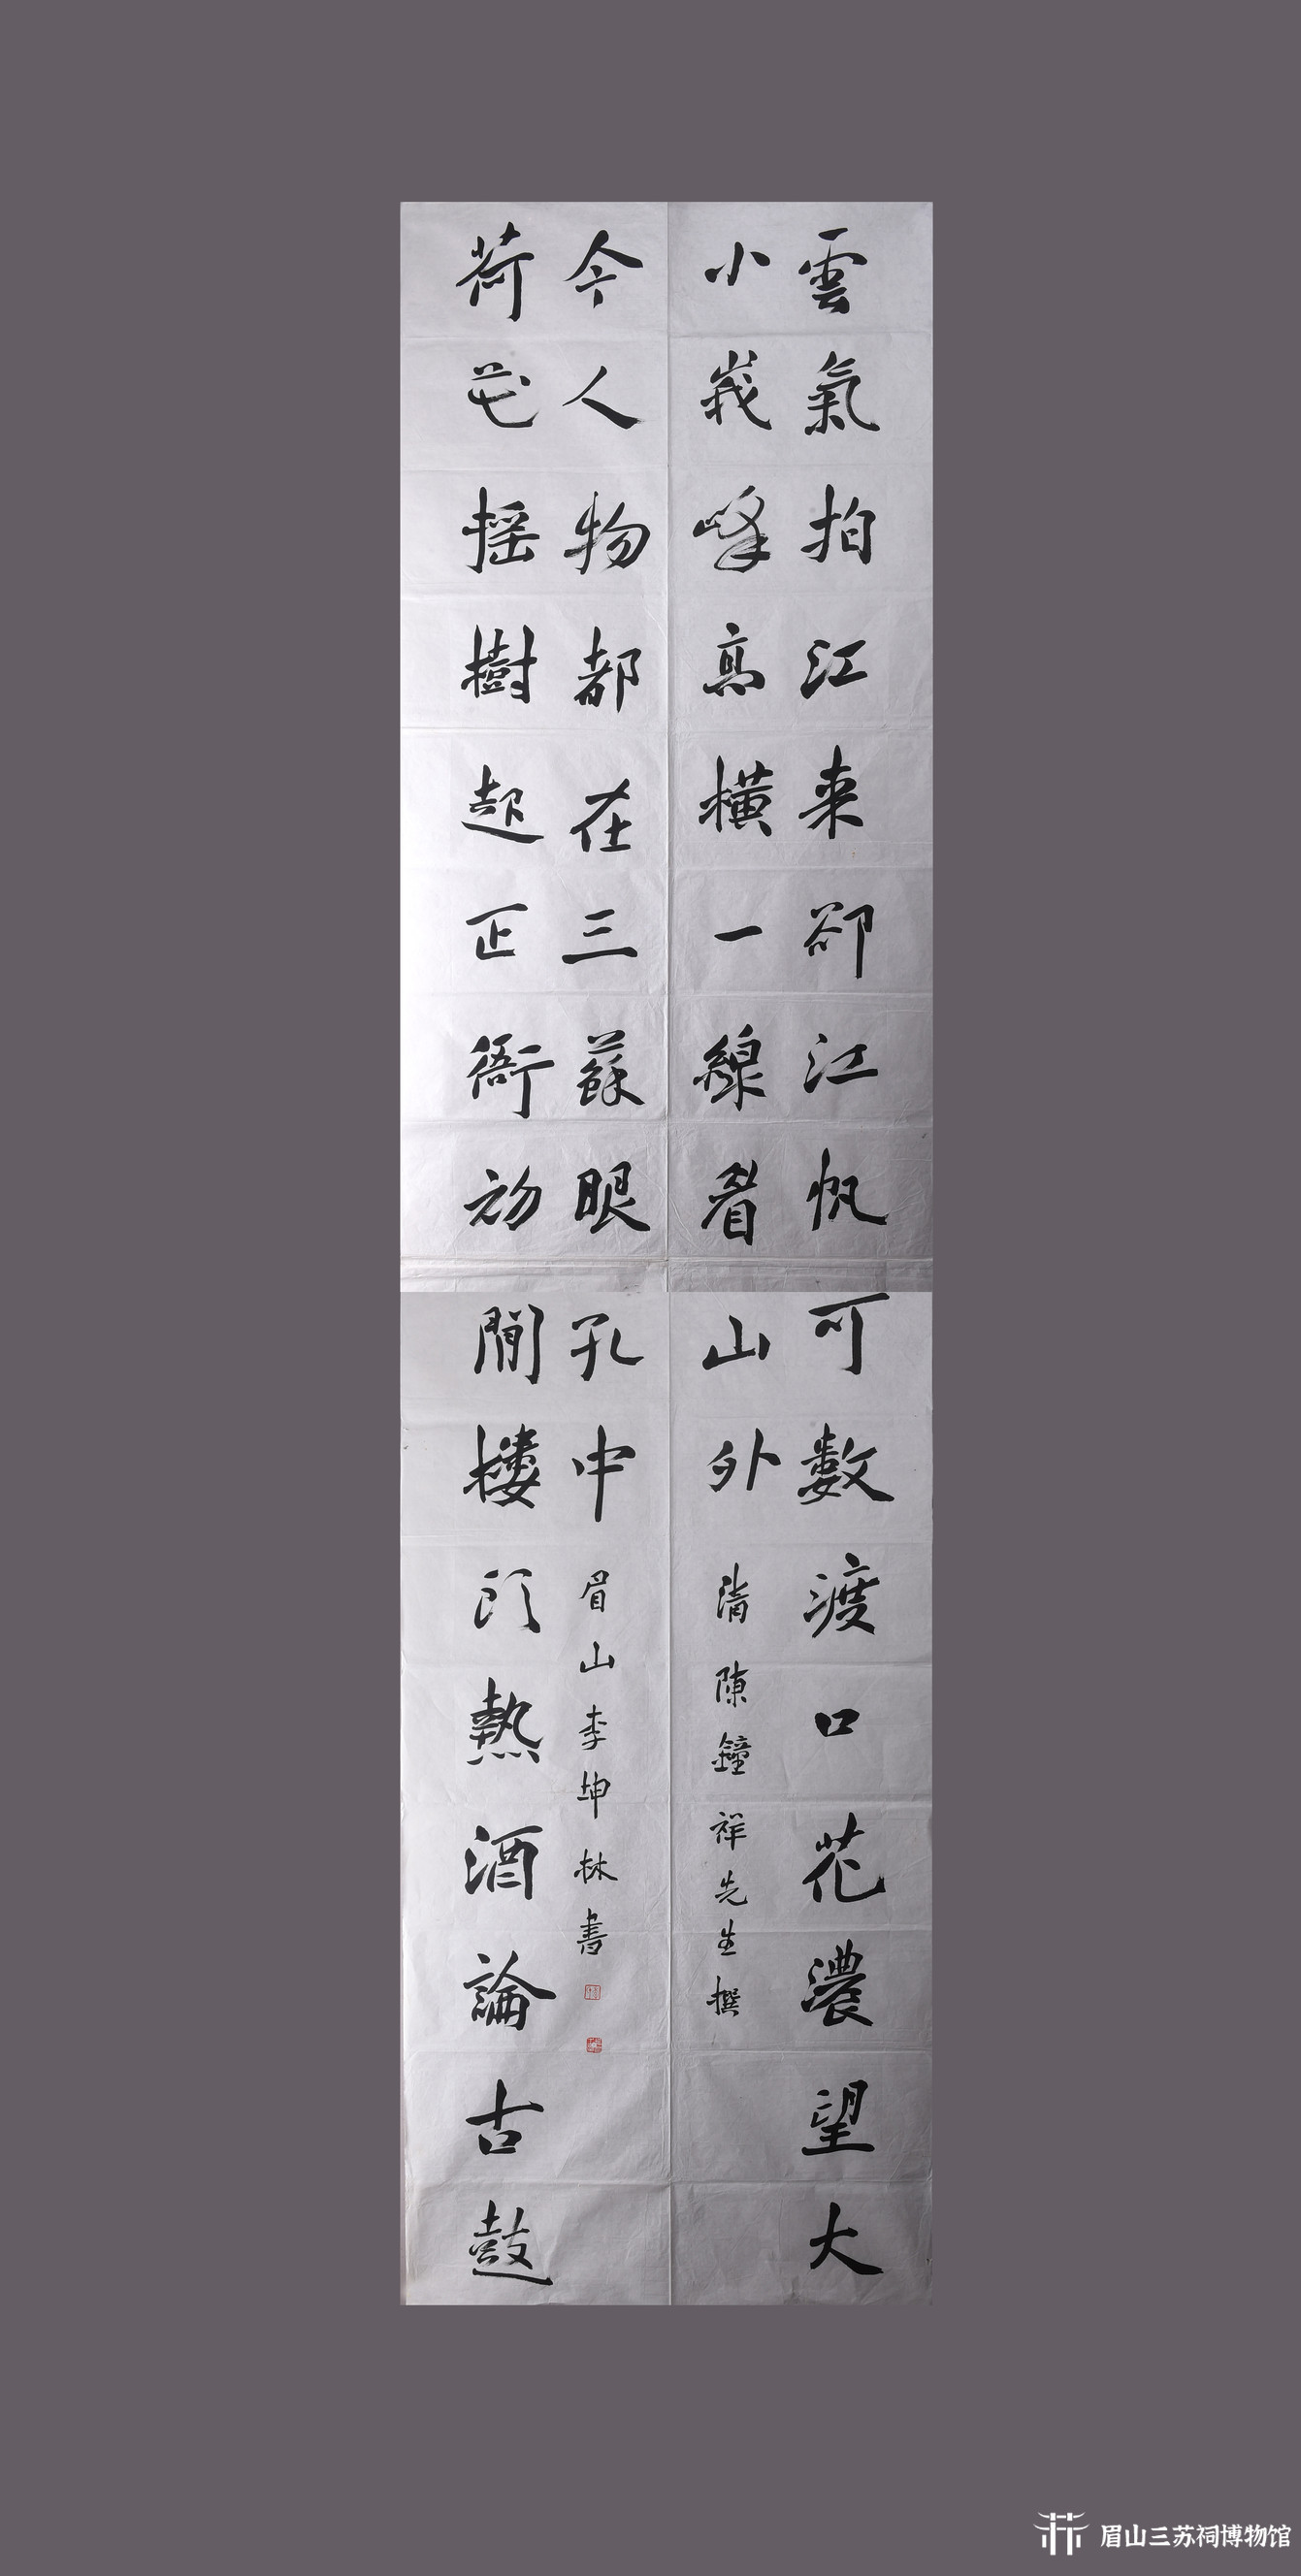 雲氣拍江来卻江帆可數渡口花濃望大
小峩峰高橫一線眉山外
清陳鐘祥先生撰
荷花摇樹起正衙初閒樓頭熱酒論古鼓
今人物都在三蘇眼孔中
眉山李坤林書
眉山三苏祠博物馆